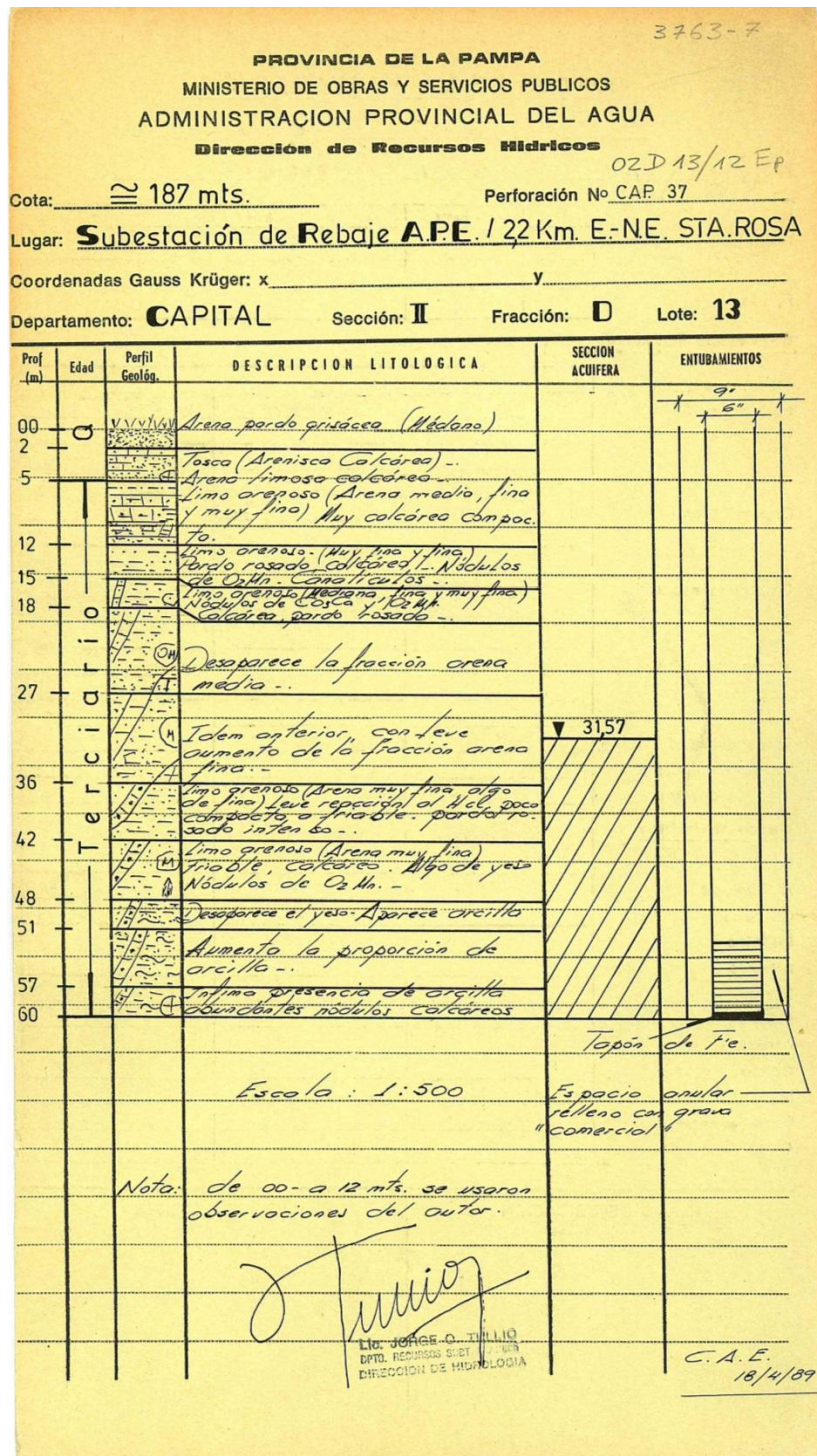 3763-7
PROVINCIA DE LA PAMPA
MINISTERIO DE OBRAS Y SERVICIOS PUBLICOS
ADMINISTRACION PROVINCIAL DEL AGUA
Dirección de Recursos Hídricos
02D 13/12 Ep
Cota: ≅ 187 mts. Perforación Nº CAP. 37
Lugar: Subestación de Rebaje A.P.E. / 2,2 Km. E.-N.E. STA.ROSA
Coordenadas Gauss Krüger: x y
Departamento: CAPITAL Sección: II Fracción: D Lote: 13
Prof (m) Edad Perfil Geológ. DESCRIPCION LITOLOGICA SECCION ACUIFERA ENTUBAMIENTOS
9"
6"
00 Q Arena pardo grisácea (Médano)
2
Tosca (Arenisca Calcárea)-.
Arena limosa calcárea-.
5
Limo arenoso (Arena media, fina
y muy fina) Muy calcárea compac.
ta.
12
Limo arenoso-(Muy fina y fina)
Pardo rosado, calcárea/-. Nódulos
de O2Mn. Canalículos-.
15
Limo arenoso (Mediana, fina y muy fina)
Nódulos de Tosca y O2Mn.
Calcárea, pardo rosado-.
18
Terciario
Desaparece la fracción arena
media-.
27
Idem anterior, con leve
aumento de la fracción arena
fina.-
31,57
36
Limo arenoso (Arena muy fina, algo
de fina) Leve reacción al Hcl, poco
compacto a friable. pardo ro-
sado intenso-.
42
Limo arenoso (Arena muy fina)
friable, calcáreo. Algo de yeso
Nódulos de O2Mn.-
48
Desaparece el yeso-Aparece arcilla
51
Aumenta la proporción de
arcilla-.
57
Infima presencia de arcilla
abundantes nódulos calcáreos
60
Tapón de Fe.
Escala : 1:500
Espacio anular
relleno con grava
"comercial"
Nota: de 00- a 12 mts. se usaron
observaciones del autor.
Lic. JORGE O. TULLIO
DPTO. RECURSOS
DIRECCION DE HIDROLOGIA
C.A.E.
18/4/89